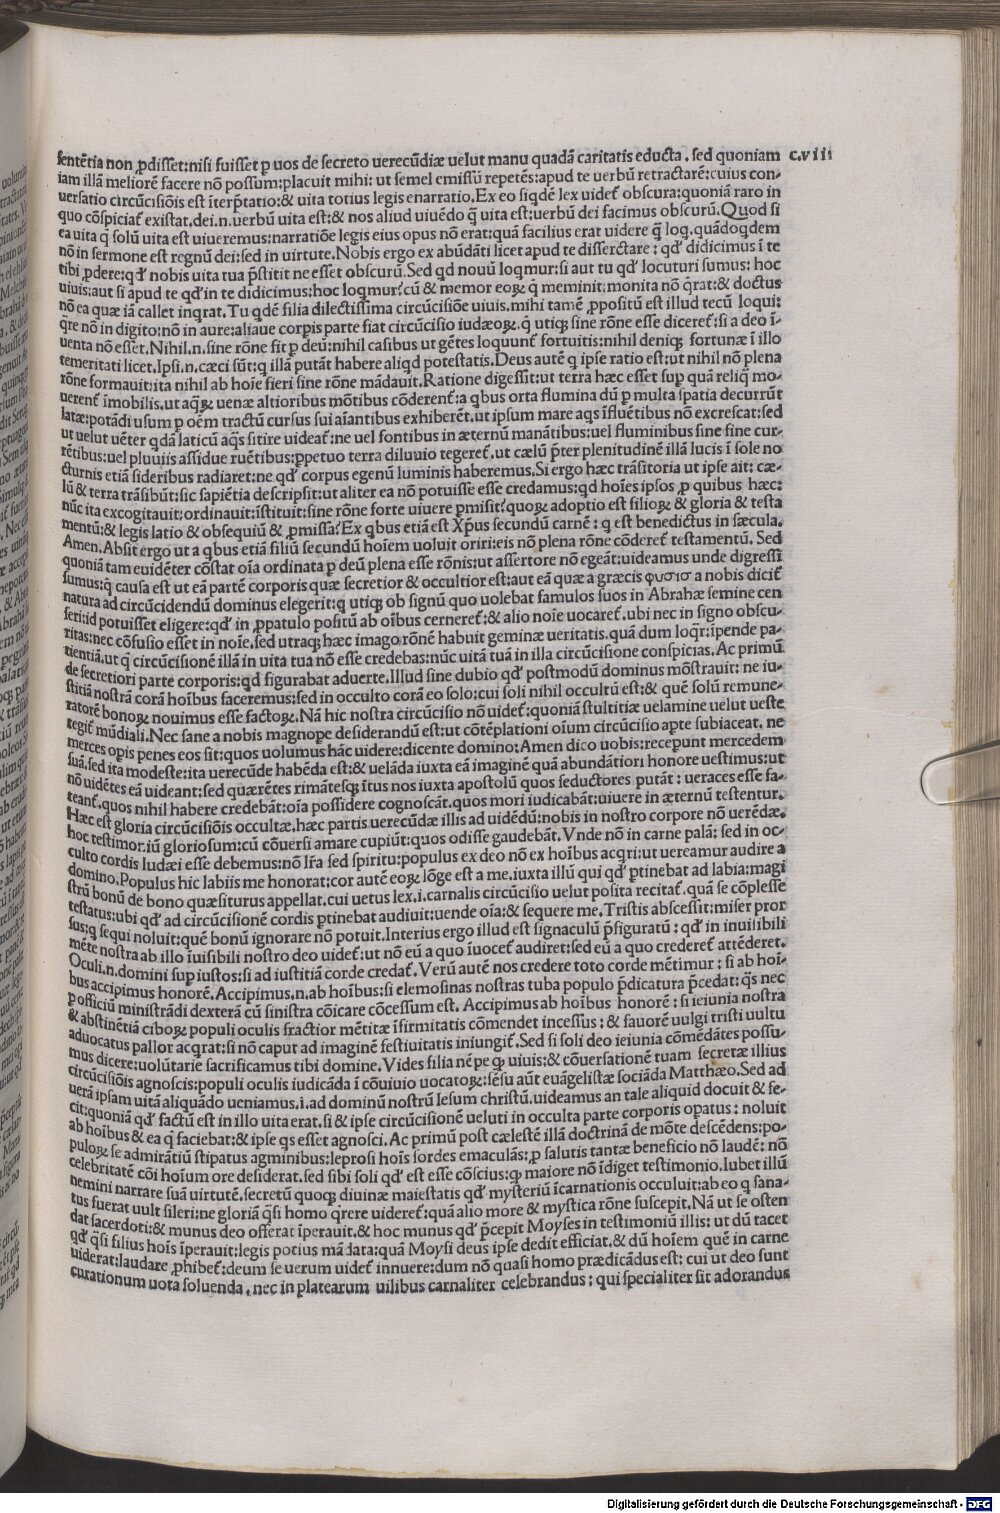 sentētia non ꝓdisset:nisi fuisset ꝑ uos de secreto uerecūdiæ uelut manu quadā caritatis educta. sed quoniam c.viii
iam illā meliorē facere nō possum:placuit mihi: ut semel emissū repetēs:apud te uerbū retractarē:cuius con-
uersatio circūcisiōis est īterp̄tatio:& uita totius legis enarratio.Ex eo siqdē lex uidet̄ obscura:quoniā raro in
quo cōspiciat̄ existat.dei.n.uerbū uita est:& nos aliud uiuēdo q̄ uita est:uerbū dei facimus obscurū.Quod si
ea uita q̄ solū uita est uiueremus:narratiōe legis eius opus nō erat:quā facilius erat uidere q̄ loq.quādoqdem
nō in sermone est regnū dei:sed in uirtute.Nobis ergo ex abūdāti licet apud te dissertare : qd' didicimus ī te
tibi ꝓdere:qd' nobis uita tua p̄stitit ne esset obscurū.Sed qd nouū loqmur:si aut tu qd' locuturi sumus: hoc
uiuis:aut si apud te qd'in te didicimus:hoc loqmur?cū & memor eoꝝ q̄ meminit:monita nō q̄rat:& doctus
nō ea quæ iā callet inqrat.Tu qdē filia dilectissima circūcisiōe uiuis.mihi tamē ꝓpositū est illud tecū loqui:
q̄re nō in digito:nō in aure:aliaue corpis parte fiat circūcisio iudæoꝝ.q̄ utiqꝫ sine rōne esse diceret̄:si a deo ī-
uenta nō esset.Nihil.n.sine rōne fit ꝑ deū:nihil casibus ut gētes loquunt̄ fortuitis:nihil deniqꝫ fortunæ ī illo
temeritati licet.Ipsi.n.cæci sūt:q illā putāt habere aliqd potestatis.Deus autē q ipse ratio est:ut nihil nō plena
rōne formauit:ita nihil ab hoīe fieri sine rōne mādauit.Ratione digessit:ut terra hæc esset suꝑ quā reliq̄ mo-
uerent̄ īmobilis.ut aqꝝ uenæ altioribus mōtibus cōderent̄:a qbus orta flumina dū ꝑ multa spatia decurrūt
latæ:potādi usum ꝑ oēm tractū cursus sui aīantibus exhiberēt.ut ipsum mare aqs īfluētibus nō excrescat:sed
ut uelut uēter qdā laticū aq̄s sitire uideat̄:ne uel fontibus in æternū manātibus:uel fluminibus sine fine cur-
rētibus:uel pluuiis assidue ruētibus:ꝑpetuo terra diluuio tegeret̄.ut cælū p̄ter plenitudinē illā lucis ī sole no
cturnis etiā sideribus radiaret:ne qd' corpus egenū luminis haberemus.Si ergo hæc trāsitoria ut ipse ait: cæ-
lū & terra trāsibūt:sic sapiētia descripsit:ut aliter ea nō potuisse esse credamus:qd hoīes ipsos ꝓ quibus hæc:
nūc ita excogitauit:ordinauit:īstituit:sine rōne forte uiuere ꝑmisit?quoꝝ adoptio est filioꝝ & gloria & testa
mentū:& legis latio & obsequiū & ꝓmissa?Ex qbus etiā est Xp̄us secundū carnē : q est benedictus in sæcula.
Amen.Absit ergo ut a qbus etiā filiū secundū hoīem uoluit oriri:eis nō plena rōne cōderet̄ testamentū. Sed
quoniā tam euidēter cōstat oīa ordinata ꝑ deū plena esse rōnis:ut assertore nō egeāt:uideamus unde digressi
sumus:q̄ causa est ut eā partē corporis quæ secretior & occultior est:aut eā quæ a græcis φυσισ a nobis dicit̄
natura ad circūcidendū dominus elegerit:q utiqꝫ ob signū quo uolebat famulos suos in Abrahæ semine cen
seri:id potuisset eligere:qd' in ꝓpatulo positū ab oībus cerneret̄:& alio noīe uocaret̄.ubi nec in signo obscu-
ritas:nec cōfusio esset in noīe.sed utraqꝫ hæc imago rōnē habuit geminæ ueritatis.quā dum loq̄r:īpende pa-
tientiā.ut q̄ circūcisionē illā in uita tua nō esse credebas:nūc uitā tuā in illa circūcisione conspicias.Ac primū
de secretiori parte corporis:qd figurabat aduerte.Illud sine dubio qd' postmodū dominus mōstrauit: ne iu-
stitiā nostrā corā hoībus faceremus:sed in occulto corā eo solo:cui soli nihil occultū est:& quē solū remune-
ratorē bonoꝝ nouimus esse factoꝝ.Nā hic nostra circūcisio nō uidet̄:quoniā stultitiæ uelamine uelut ueste
tegit̄ mūdiali.Nec sane a nobis magnope desiderandū est:ut cōtēplationi oīum circūcisio apte subiaceat. ne
merces opis penes eos sit:quos uolumus hāc uidere:dicente domino:Amen dico uobis:recepunt mercedem
suā.sed ita modeste:ita uerecūde habēda est:& uelāda iuxta eā imaginē quā abundātiori honore uestimus:ut
nō uidētes eā uideant:sed quærētes rimātesqꝫ ītus nos iuxta apostolū quos seductores putāt : ueraces esse fa-
teant̄.quos nihil habere credebāt:oīa possidere cognoscāt.quos mori iudicabāt:uiuere in æternū testentur.
Hæc est gloria circūcisiōis occultæ.hæc partis uerecūdæ illis ad uidēdū:nobis in nostro corpore nō uerēdæ.
hoc testimoniū gloriosum:cū cōuersi amare cupiūt:quos odisse gaudebāt.Vnde nō in carne palā: sed in oc-
culto cordis Iudæi esse debemus:nō lr̄a sed spiritu:populus ex deo nō ex hoībus acqri:ut uereamur audire a
domino.Populus hic labiis me honorat:cor autē eoꝝ lōge est a me.iuxta illū qui qd' ꝑtinebat ad labia:magi
strū bonū de bono quæsiturus appellat.cui uetus lex.i.carnalis circūcisio uelut posita recitat̄.quā se cōplesse
testatus:ubi qd' ad circūcisionē cordis ꝑtinebat audiuit:uende oīa:& sequere me.Tristis abscessit:miser pror
sus:q sequi noluit:quē bonū ignorare nō potuit.Interius ergo illud est signaculū p̄figuratū: qd' in inuisibili
mēte nostra ab illo īuisibili nostro deo uidet̄:ut nō eū a quo īuocet̄ audiret:sed eū a quo crederet̄ attēderet.
Oculi.n.domini suꝑ iustos:si ad iustitiā corde credat̄.Verū autē nos credere toto corde mētimur : si ab hoī-
bus accipimus honorē.Accipimus.n.ab hoībus:si elemosinas nostras tuba populo p̄dicatura p̄cedat: q̄s nec
ꝑ officiū ministrādi dexterā cū sinistra cōicare cōcessum est. Accipimus ab hoībus honorē : si ieiunia nostra
& abstinētiā ciboꝝ populi oculis fractior mētitæ īfirmitatis cōmendet incessus : & fauorē uulgi tristi uultu
aduocatus pallor acqrat:si nō caput ad imaginē festiuitatis iniungit̄.Sed si soli deo ieiunia cōmēdātes possu-
mus dicere:uolūtarie sacrificamus tibi domine.Vides filia nēpe qꝫ uiuis:& cōuersationē tuam secretæ illius
circūcisiōis agnoscis:populi oculis iudicāda ī cōuiuio uocatoꝝ:sēsu aūt euāgelistæ sociāda Matthæo.Sed ad
uerā ipsam uitā aliquādo ueniamus.i.ad dominū nostrū Iesum christū.uideamus an tale aliquid docuit & fe-
cit:quoniā qd' factū est in illo uita erat.si & ipse circūcisionē ueluti in occulta parte corporis opatus : noluit
ab hoībus & ea q̄ faciebat:& ipse qs esset agnosci.Ac primū post cælestē illā doctrinā de mōte descēdens:po-
puloꝝ se admirātiū stipatus agminibus:leprosi hoīs sordes emaculās:ꝓ salutis tantæ beneficio nō laudē: nō
celebritatē cōi hoīum ore desiderat.sed sibi soli qd' est esse cōscius:q̄ maiore nō īdiget testimonio.Iubet illū
nemini narrare suā uirtutē.secretū quoqꝫ diuinæ maiestatis qd' mysteriū īcarnationis occuluit:ab eo q sana-
tus fuerat uult sileri:ne gloriā q̄si homo q̄rere uideret̄:quā alio more & mystica rōne suscepit.Nā ut se osten
dat sacerdoti:& munus deo offerat īperauit.& hoc munus qd' p̄cepit Moyses in testimoniū illis: ut dū tacet
qd' q̄si filius hoīs īperauit:legis potius mādata:quā Moysi deus ipse dedit efficiat.& dū hoīem quē in carne
uiderat:laudare ꝓhibet̄:deum se uerum uidet̄ innuere:dum nō quasi homo prædicādus est: cui ut deo sunt
curationum uota soluenda. nec in platearum uilibus carnaliter celebrandus : qui specialiter sit adorandus
Digitalisierung gefördert durch die Deutsche Forschungsgemeinschaft - DFG